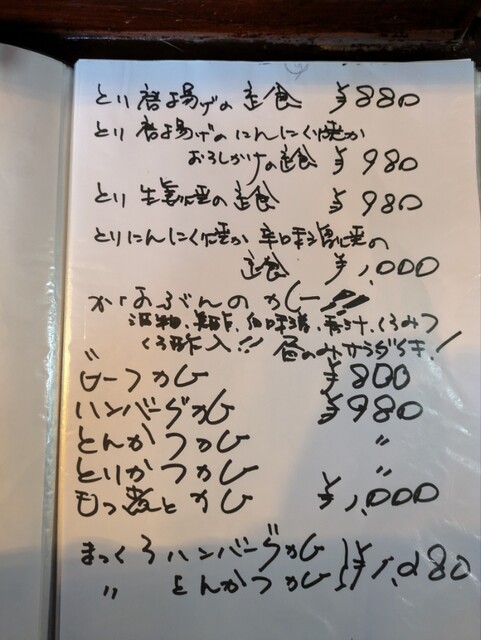 とり唐揚げの定食 ¥880
とり唐揚げのにんにく焼か
おろしかけの定食 ¥980
とり生姜焼の定食 ¥980
とりにんにく焼か辛口味噌焼の
定食 ¥1,000
のカレー!!!
くるみつ
くろ酢入!! 昼のみサラダつき!
ビーフカレー ¥800
ハンバーグカレー ¥980
とんかつカレー 〃
とりかつカレー 〃
もつ煮とカレー ¥1,000
まっくろハンバーグカレー ¥1,080
〃 とんかつカレー